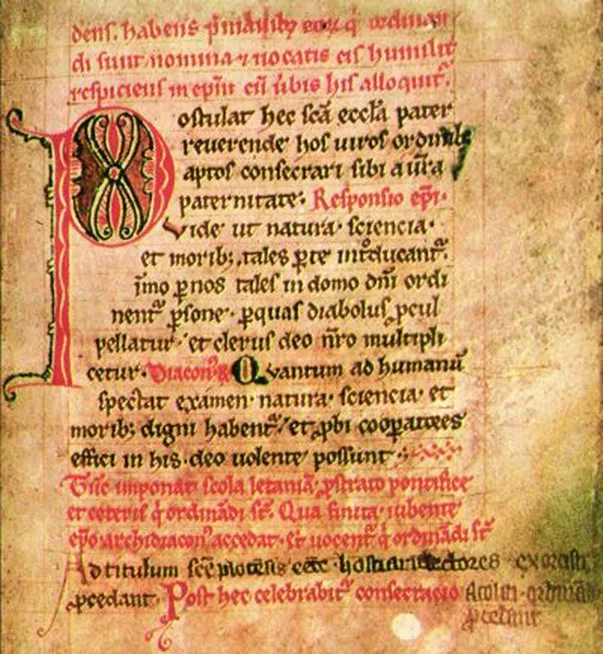 dens. habens p̄ manib; eoꝝ q̇ ordinan
di sunt nomina ⁊ uocatis eis humilit̾
respiciens in ep̄m cū ūbis his alloquit̾.
Postulat hec sc̄a eccl̄a pater
reuerende hos uiros ordinib;
aptos consecrari sibi a ur̄a
paternitate. Responsio ep̄i.
Vide ut natura. sciencia.
et morib; tales ꝑ te introducant̾.
imo ꝑ nos tales in domo dn̄i ordi
nent̾ ꝑsone. ꝑ quas diabolus ꝓcul
pellatur. et clerus deo nr̄o multipli
cetur. Diacon⁹. Quantum ad humanū
spectat examen. natura. sciencia. et
morib; digni habent̾. et ꝓbi cooꝑatores
effici in his. deo uolente possunt.
Tūc imponat scola letaniā. ꝓstrato pontifice
et ceteris q̇ ordinādi st̄. Qua finita. iubente
ep̄o archidiacon⁹ accedat. et uocent̾ q̇ ordinādi st̄
Ad titulum sc̄e eccl̄e hostiarii lectores exorciste
ꝓcedant. Post hec celebrabit̾ consecracio Acoliti. ordinandi
ꝓcedant